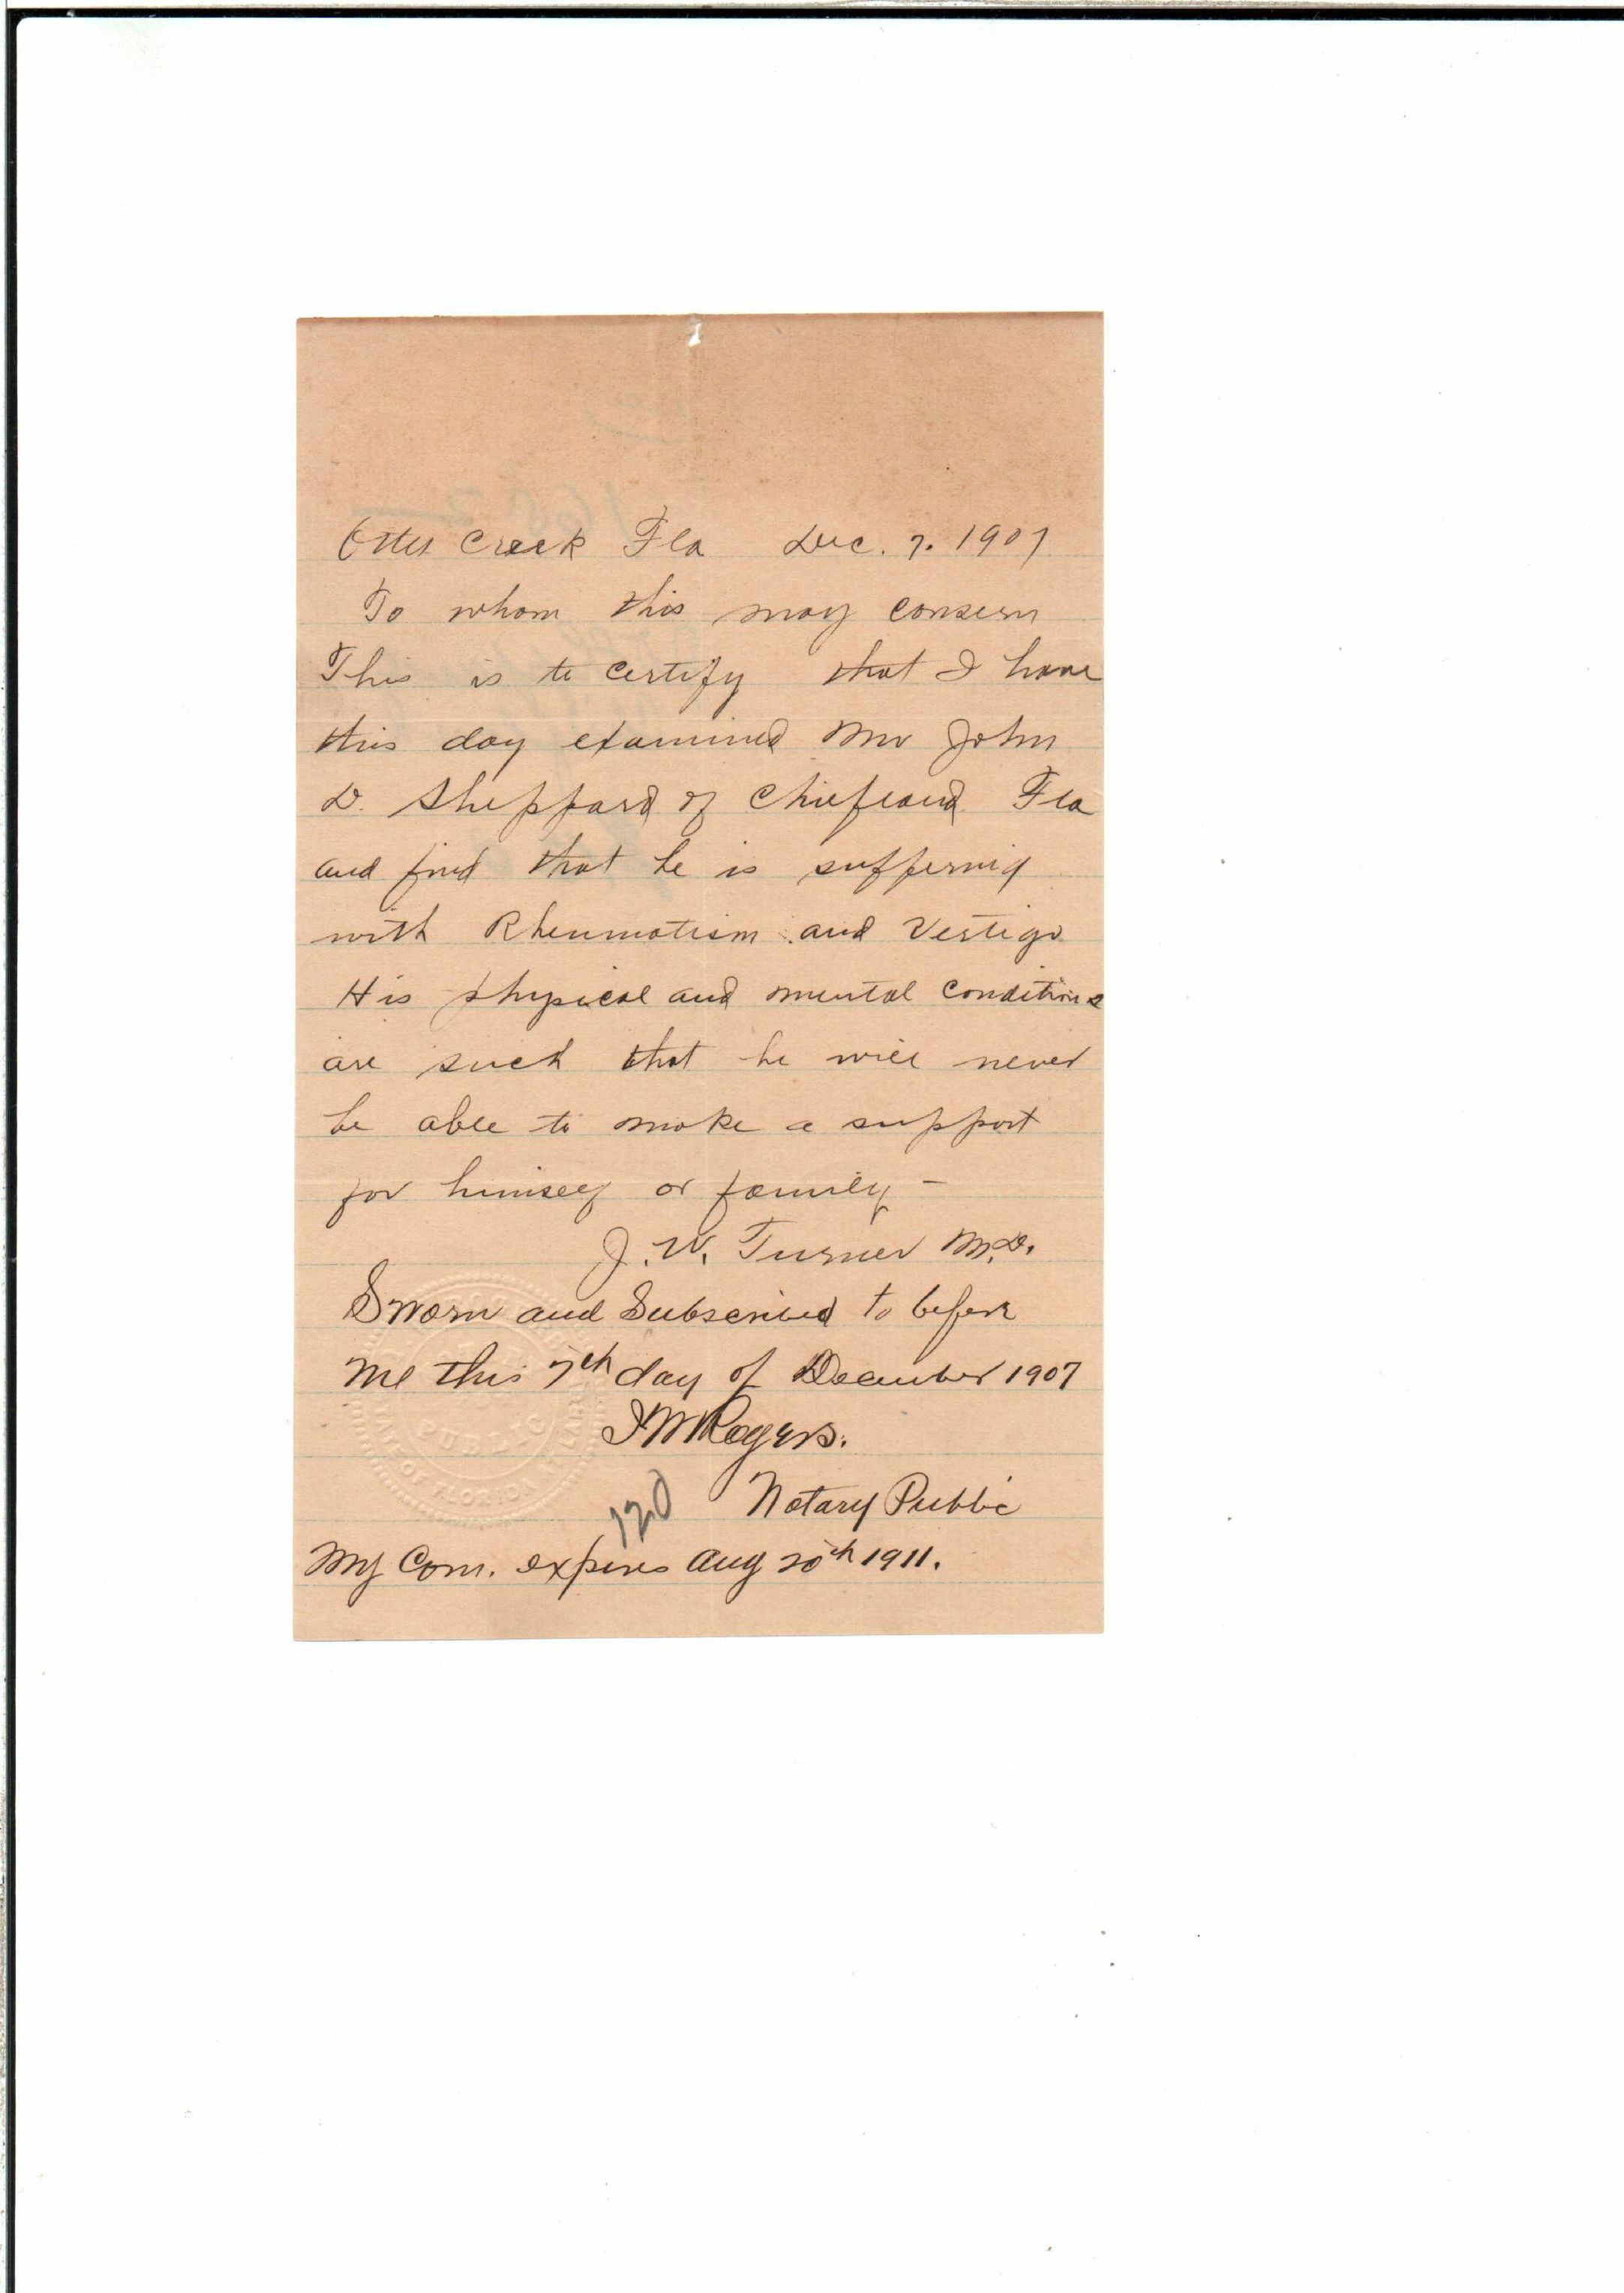 Otter Creek Fla Dec. 7. 1907
To whom this may consern
This is to certify that I have
this day examined Mr John
D. Sheppard of Chiefland Fla
and find that he is suffering
with Rheumatism and Vertigo
His physical and mental conditions
are such that he will never
be able to make a support
for himself or family -
J. W. Turner M.D.
Sworn and Subscribed to before
me this 7th day of December 1907
Rogers.
Notary Public
120
My Com. expires Aug 20th 1911.
PUBLIC
STATE OF FLORIDA AT LARGE